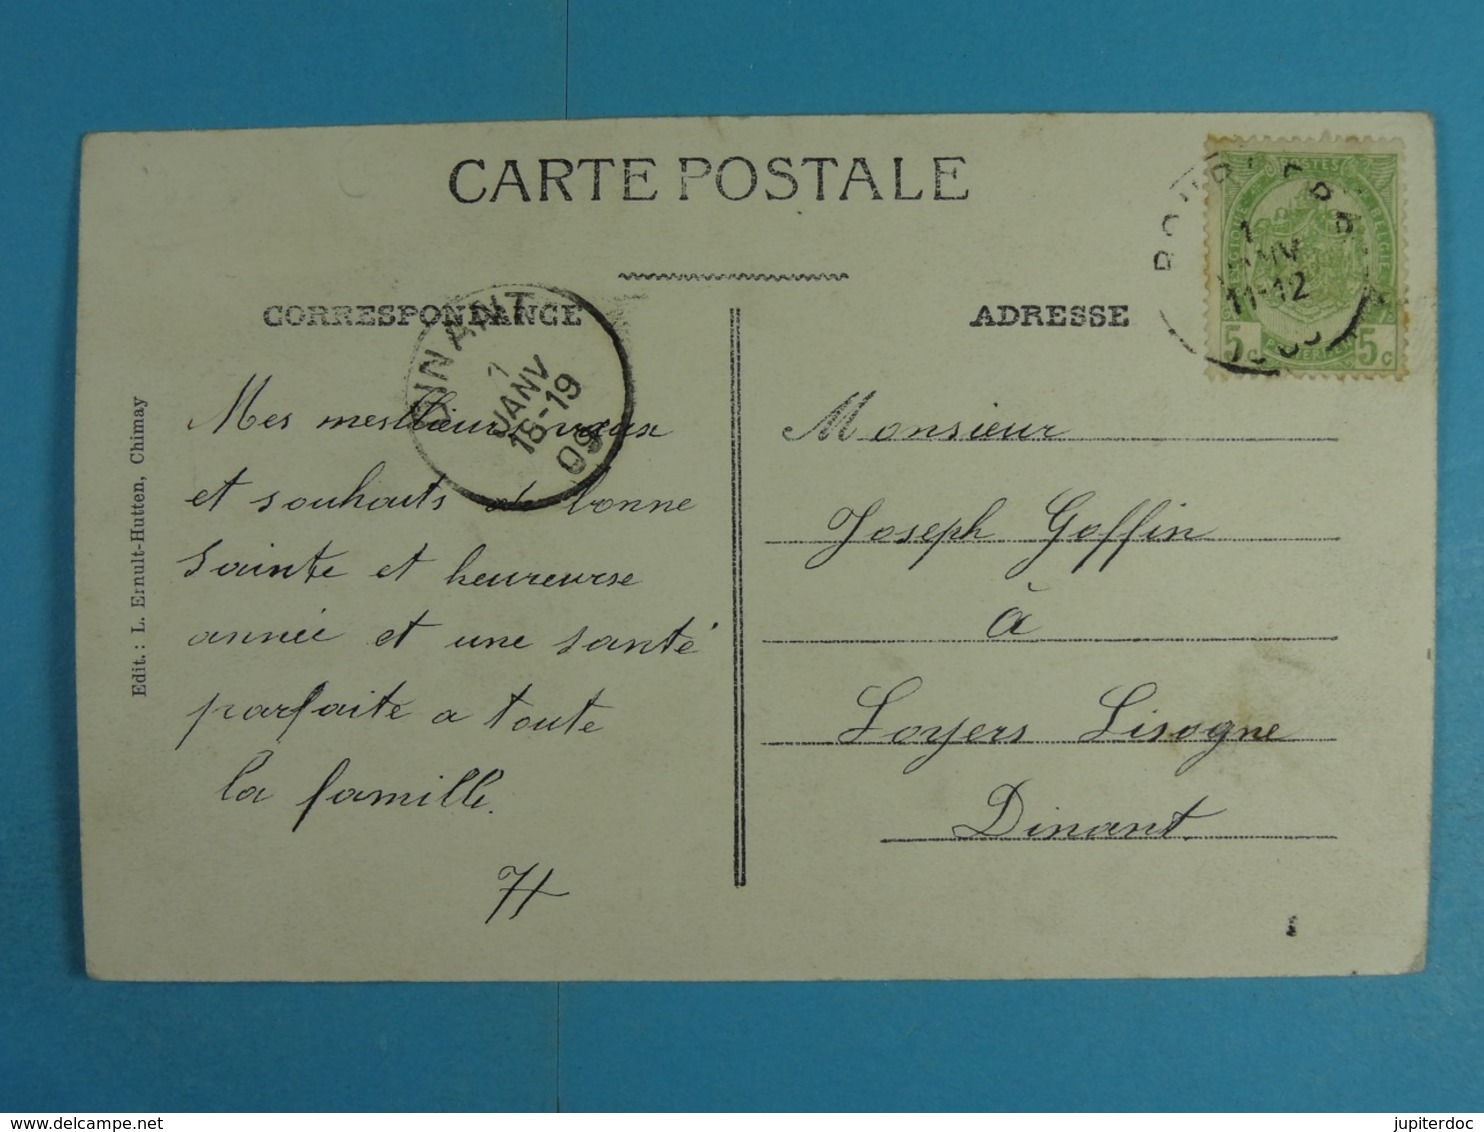 CARTE POSTALE
CORRESPONDANCE
ADRESSE
DINANT
1
JANV
18-19
09
1
JANV
11-12
POSTES
BELGIQUE
5c
5c
Edit.: L. Ernult-Hutten, Chimay
Mes meilleurs vœux
et souhaits de bonne
Sainte et heureurse
année et une santé
parfaite a toute
la famille.
Monsieur
Joseph Goffin
à
Loyers Lisogne
Dinant
delcampe.net
jupiterdoc